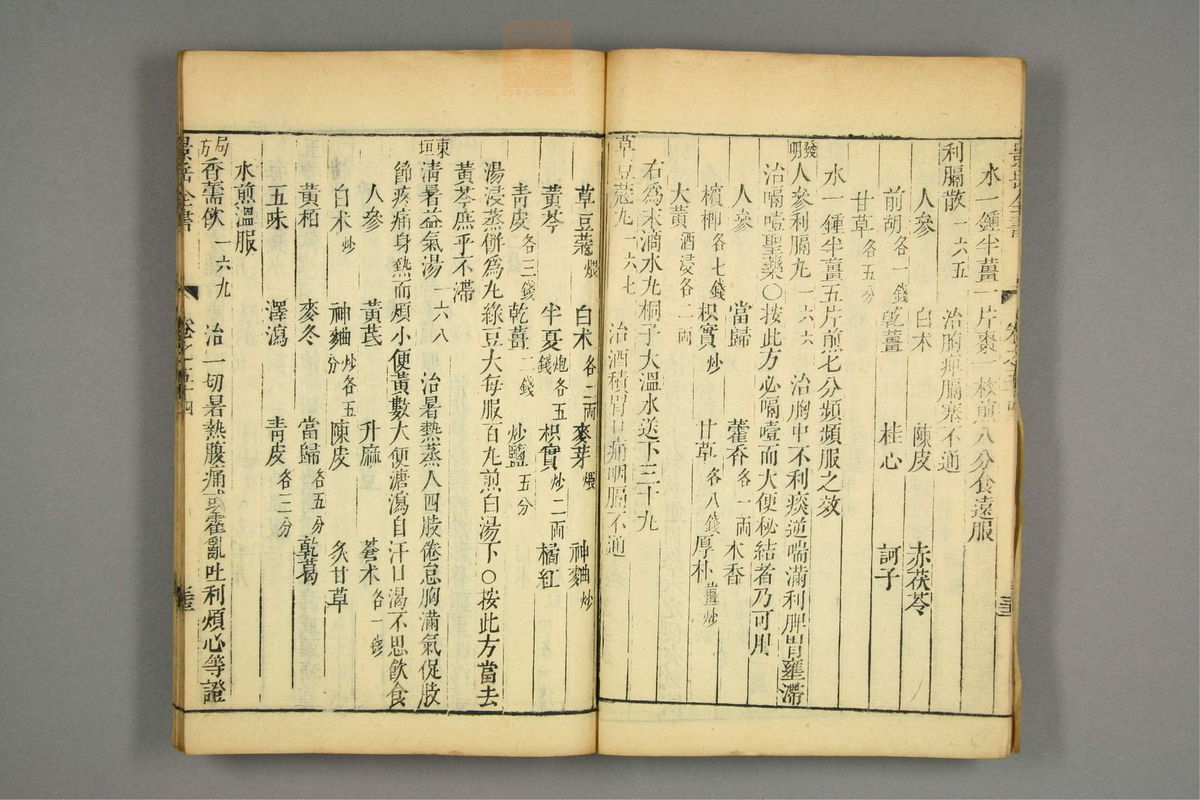 水一鍾半薑一片棗一枚煎八分食遠服
利膈散一六五 治胸痺膈塞不通
人參 白术 陳皮 赤茯苓
前胡各一錢 乾薑 桂心 訶子
甘草各五分
水一鍾半薑五片煎七分頻頻服之效
發明 人參利膈丸一六六 治胸中不利痰逆喘滿利脾胃壅滯
治嗝噎聖藥○按此方必嗝噎而大便秘結者乃可用
人參 當歸 藿香各一兩 木香
檳榔各七錢 枳實炒 甘草各八錢 厚朴薑炒
大黃酒浸各二兩
右爲末滴水丸桐子大溫水送下三十丸
草豆蔻丸一六七 治酒積胃中痛咽膈不通
草豆蔻煨 白术各二兩 麥芽煨 神麯炒
黃芩 半夏炮各五錢 枳實炒二兩 橘紅
青皮各三錢 乾薑二錢 炒鹽五分
湯浸蒸餅爲丸綠豆大每服百丸煎白湯下○按此方當去
黃芩庶乎不滯
東垣 清暑益氣湯一六八 治暑熱蒸人四肢倦怠胸滿氣促肢
節疼痛身熱而煩小便黃數大便溏瀉自汗口渴不思飲食
人參 黃芪 升麻 蒼术各一錢
白术炒 神麯炒各五分 陳皮 炙甘草
黃栢 麥冬 當歸各五分 乾葛
五味 澤瀉 青皮各二分
水煎溫服
局方 香薷飲一六九 治一切暑熱腹痛或霍亂吐利煩心等證
景岳全書 卷之五十四